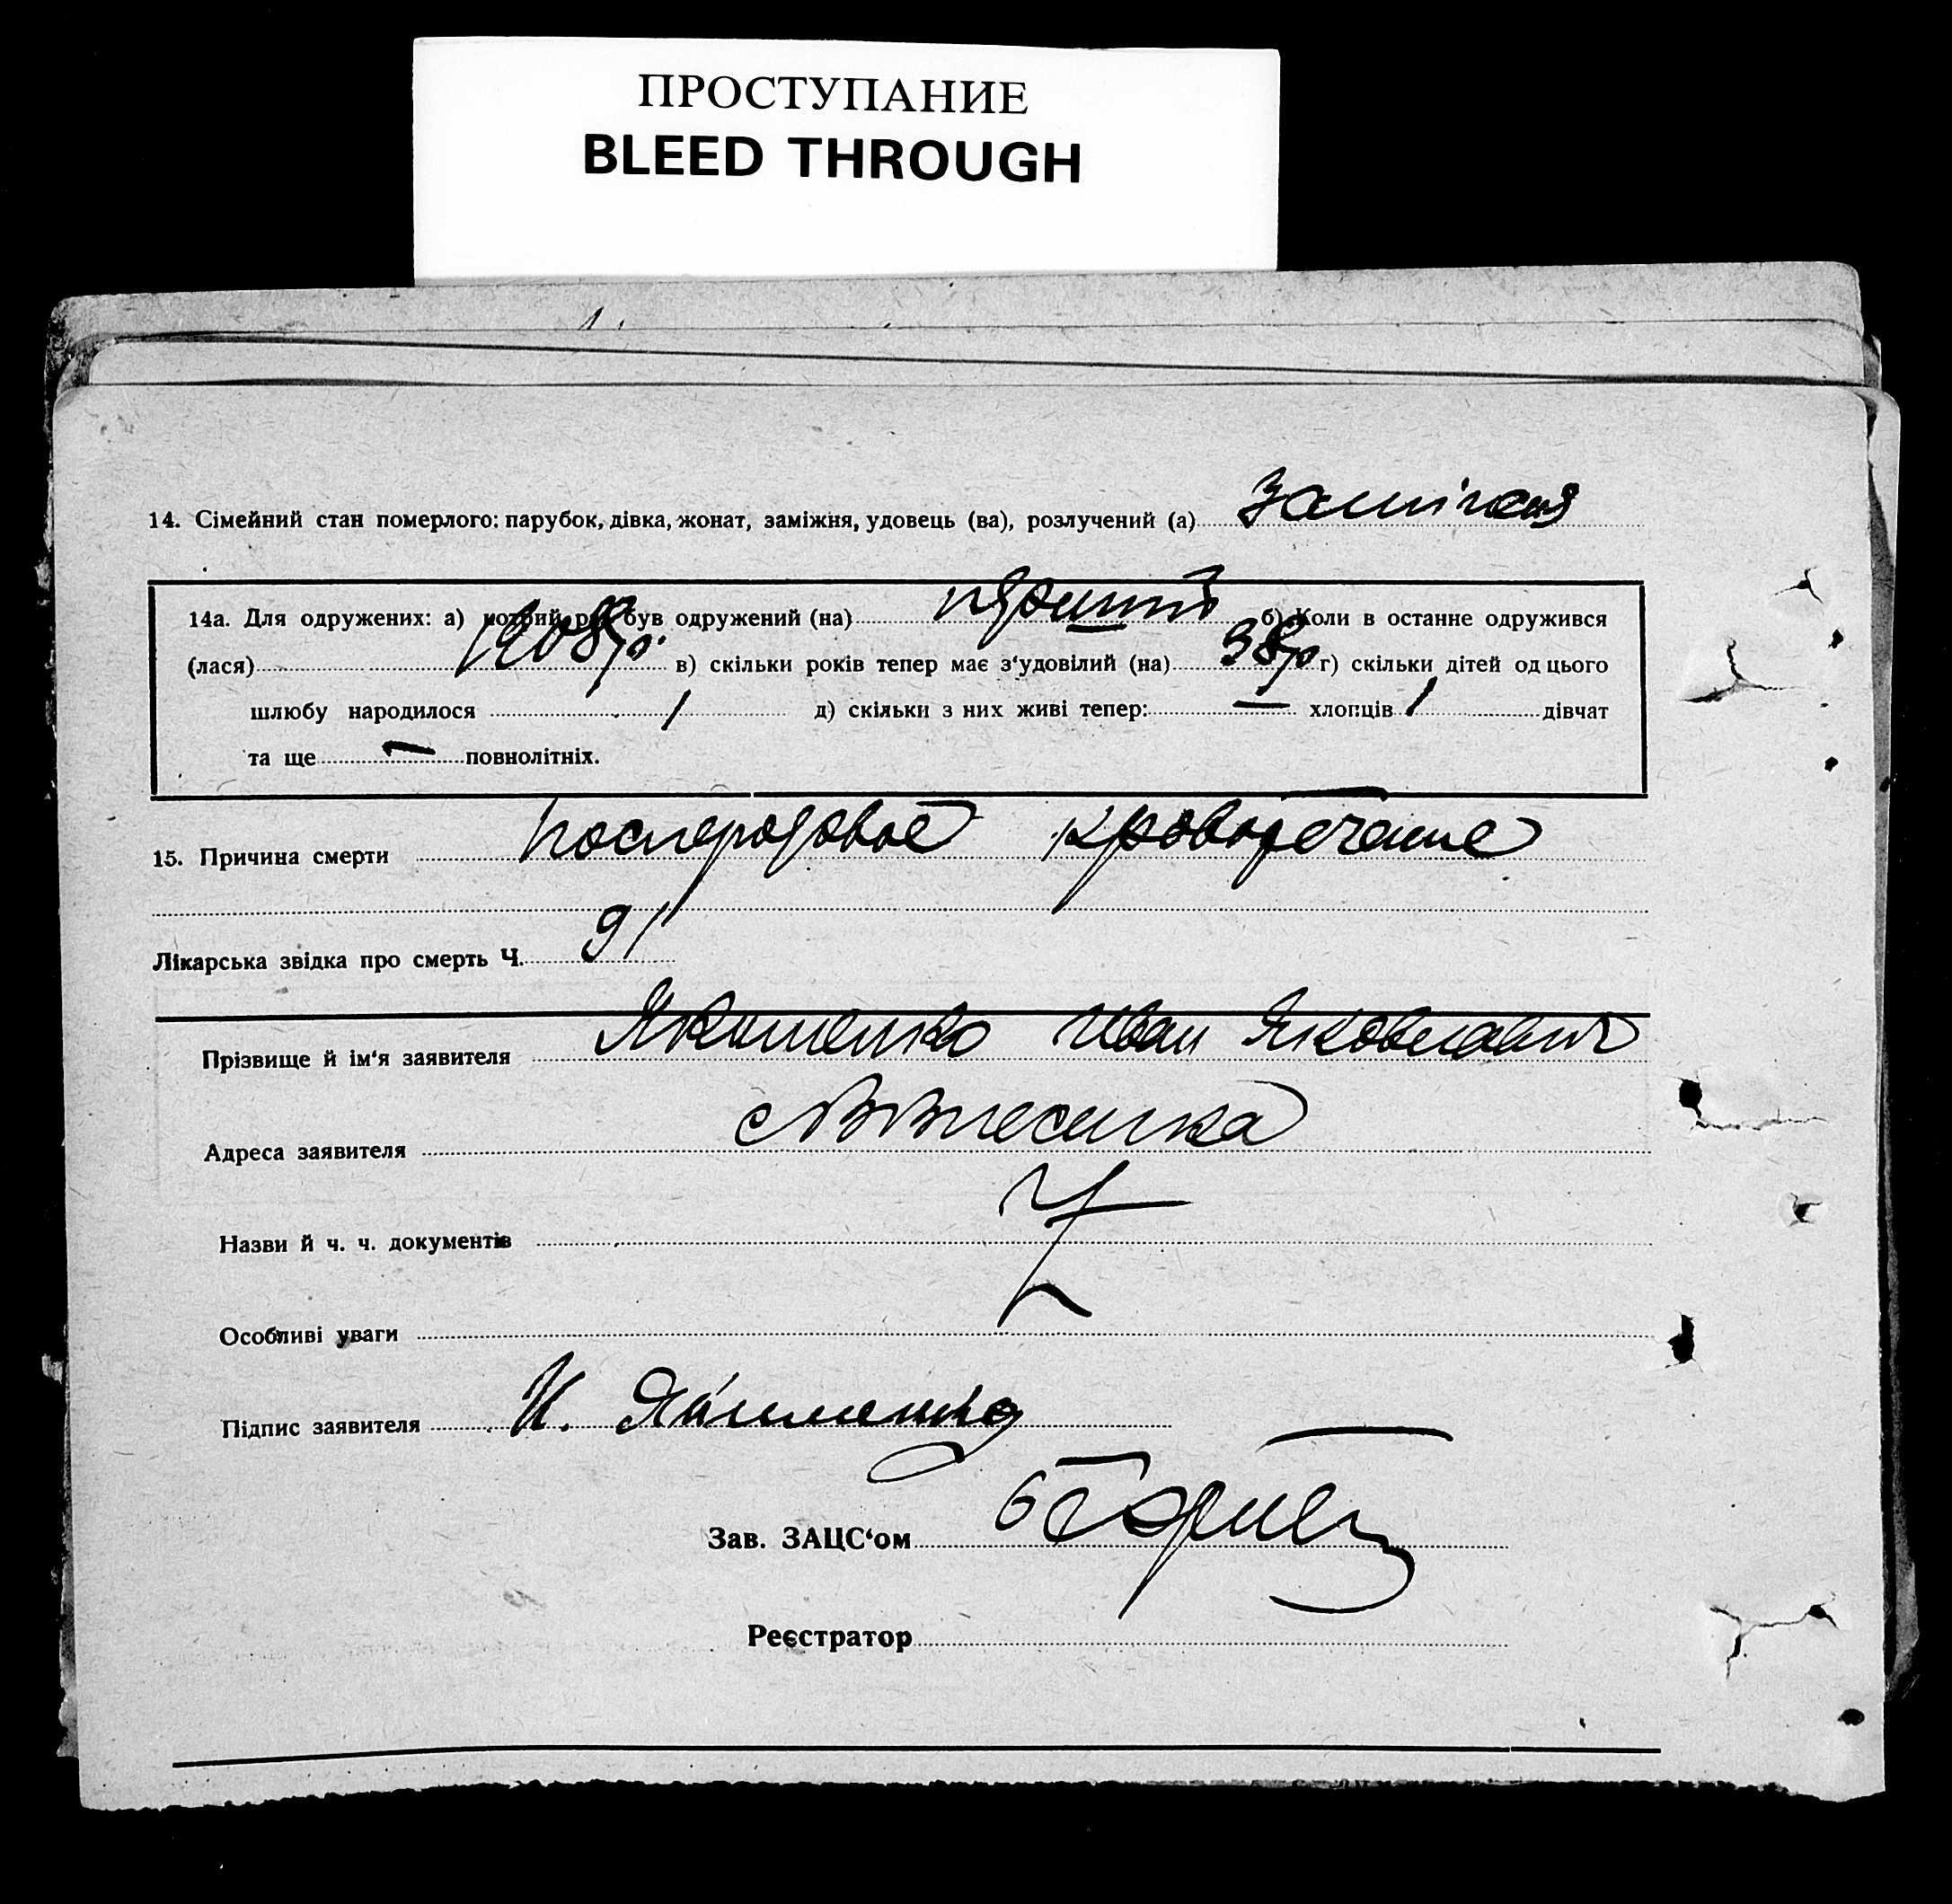 ПРОСТУПАНИЕ
BLEED THROUGH
14. Сімейний стан померлого: парубок, дівка, жонат, заміжня, удовець (ва), розлучений (а) заміжня
14а. Для одружених: а) котрий раз був одружений (на) перший б) Коли в останне одружився
(лася) 1908 р. в) скільки років тепер має з‘удовілий (на) 38 р г) скільки дітей од цього
шлюбу народилося 1 д) скільки з них живі тепер: — хлопців 1 дівчат
та ще — повнолітніх.
15. Причина смерти послеродовое кровотечение
Лікарська звідка про смерть Ч. 91
Прізвище й ім‘я заявителя Якименко Иван Яковлевич
Адреса заявителя
Назви й ч. ч. документів
Особливі уваги
Підпис заявителя И. Якименко
Зав. ЗАЦС‘ом
Реєстратор